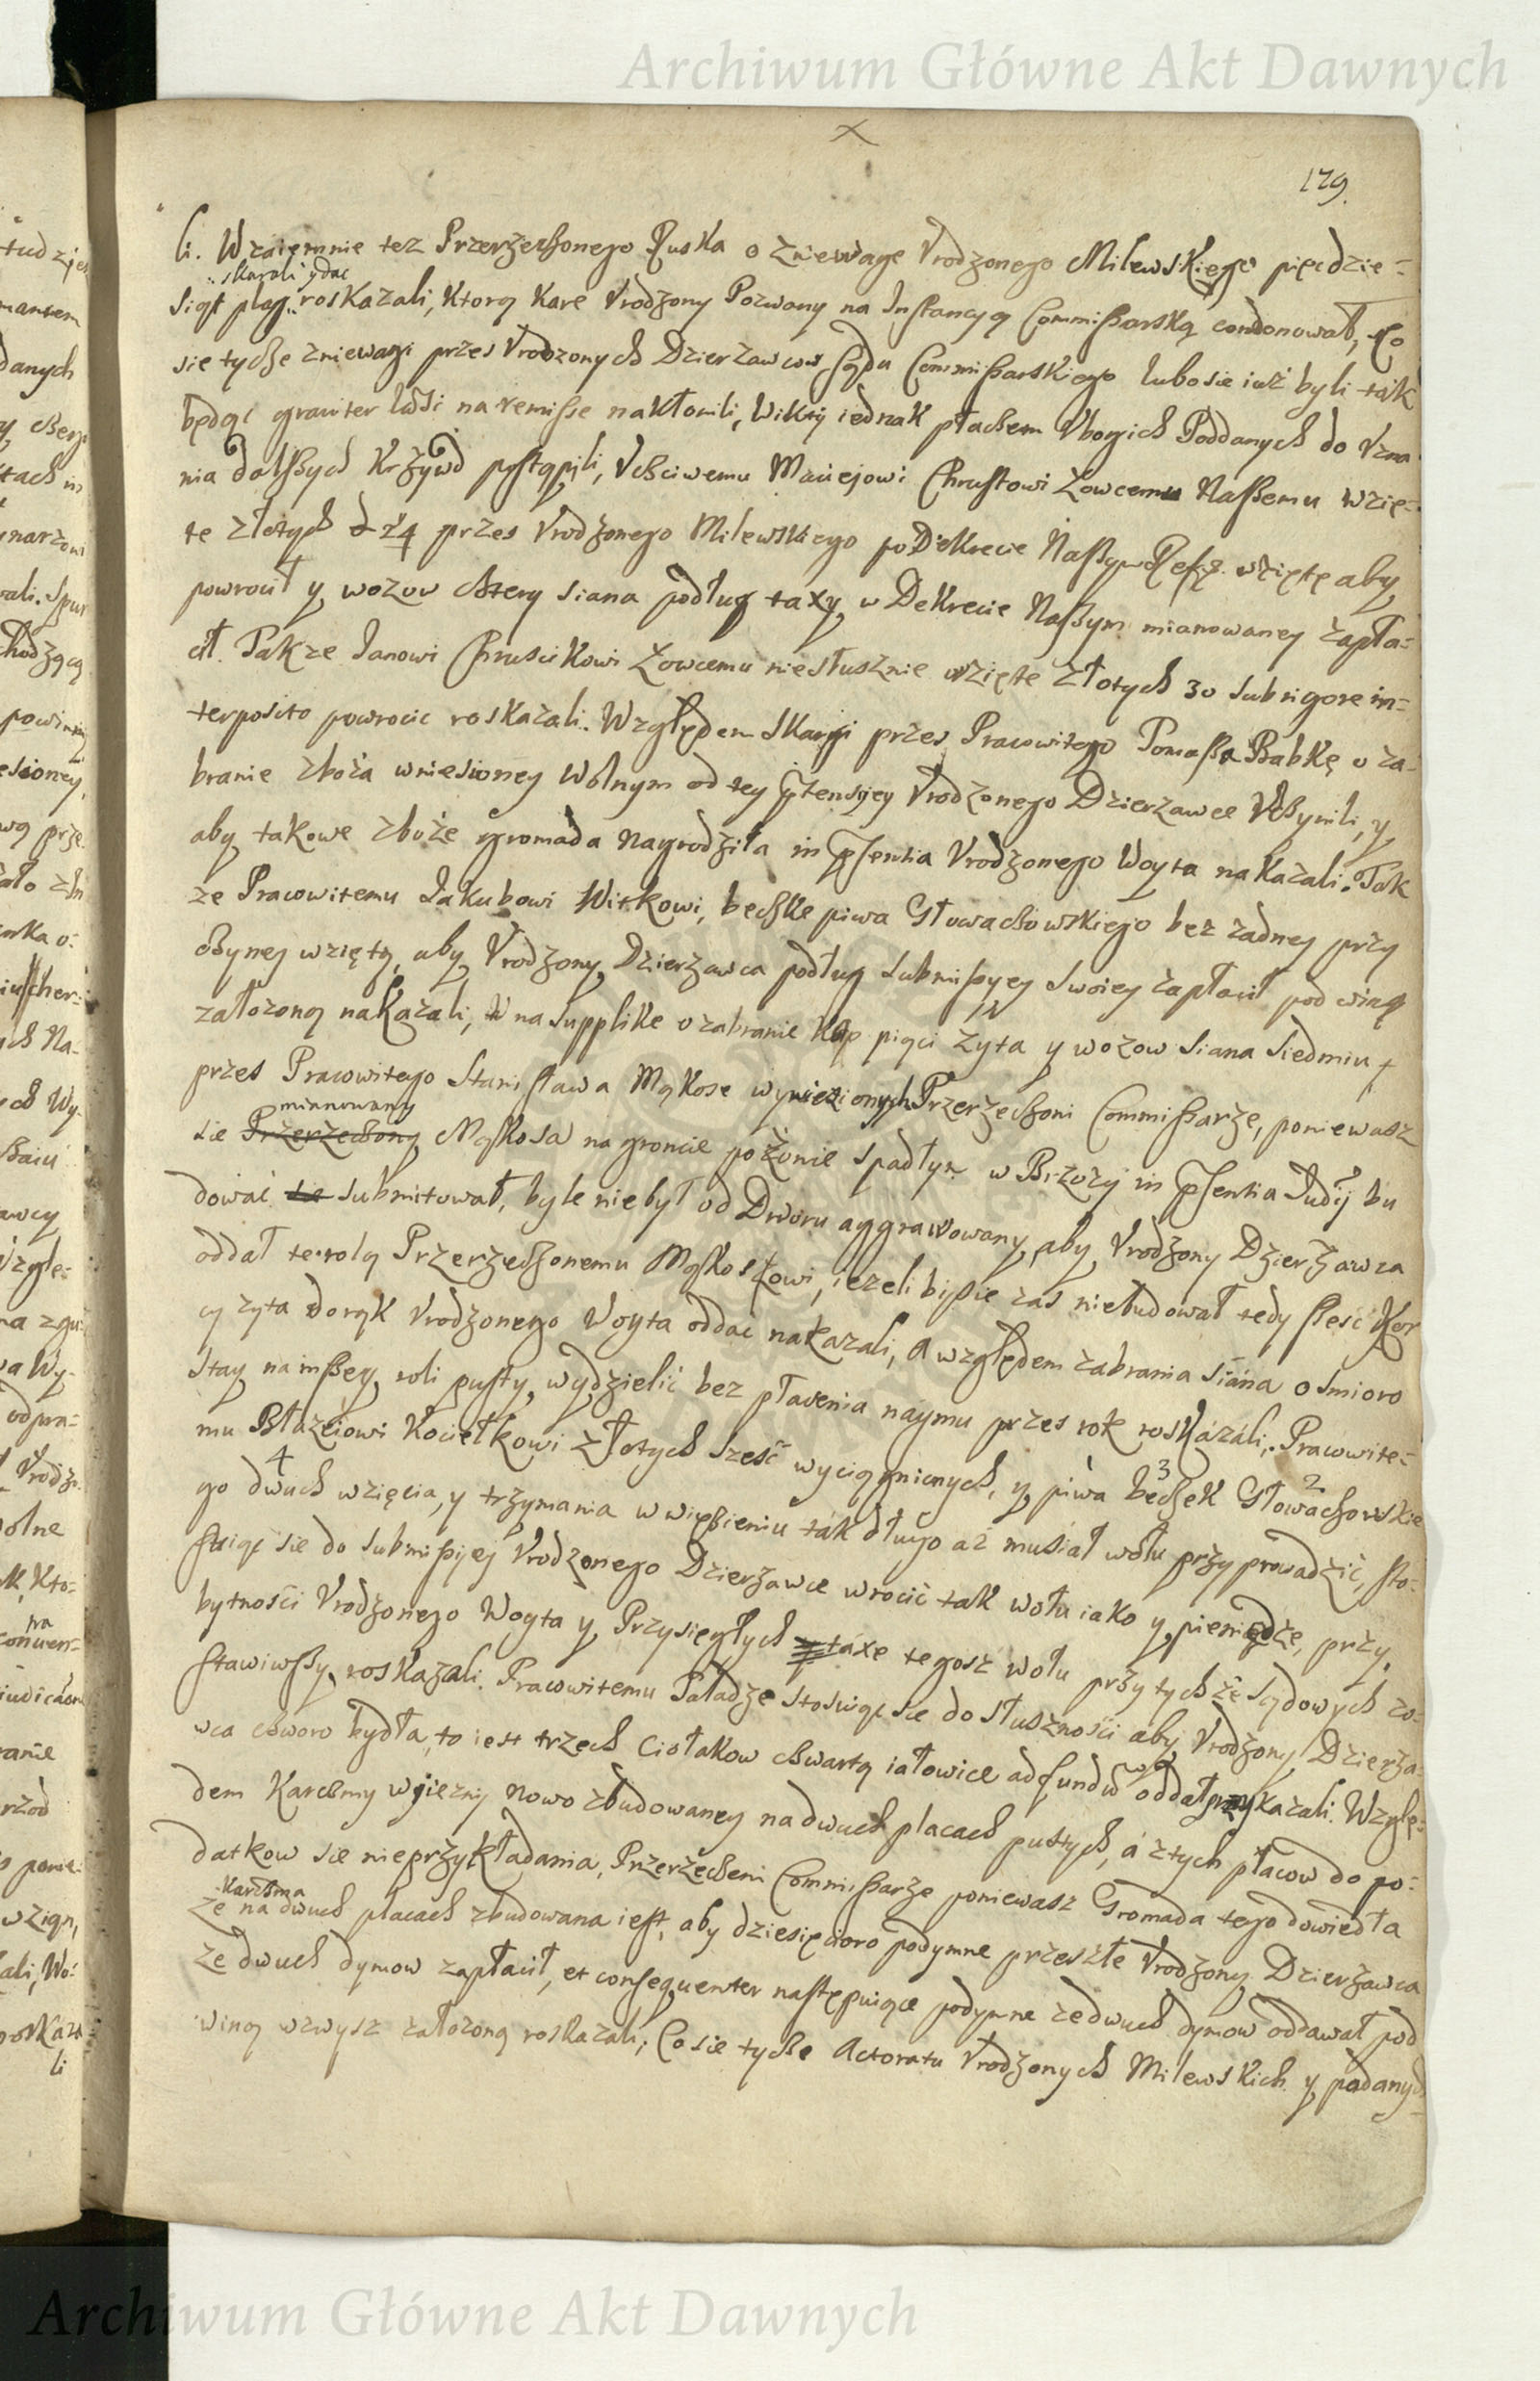 Archiwum Główne Akt Dawnych
179.
li. Wzaiemnie tez Przerzeczonego Ruska o zniewage Vrodzonego Milewskiego pięcdzie=
skarali ydac
siąt plag roskazali, Ktorą Karę Vrodzony Pozwany na Instancyą Commissarską condonował, Co
sie tycze zniewagi przes Vrodzonych Dzierzawcow Sądu Commissarskiego lubosie iuż byli ták
będąc grauiter læsi na remisse nakłonili, wikty iednak płaczem Vbogich Poddanych do Vzna
nia dalszych Krzywd pustąpili, Vcsciwemu Maciejowi Chrustowi Łowcemu Naszemu wzię=
te złotych 24 przes Vrodzonego Milewskiego po Dekrecie Naszym wzięte aby
powrocił y wozow cztery siana podług taxy w Dekrecie Naszym mianowaney zapła=
cił. Takze Janowi Chruscikowi Łowcemu niesłusznie wzięte złotych 30 sub rigore in=
terposito powrocic roskazali. Względem skargi przes Pracowitego Tomasza Babkę o za=
branie zboża wniesioney wolnym od tey prtensyey Vrodzonego Dzierzawce Vczynili, y
aby takowe zboże gromada nagrodziła in pssentia Vrodzonego Woyta nakazali. Tak
ze Pracowitemu Jakubowi Witkowi, beczke piwa Głowaczowskiego bez zadney przy
czyney wziętą, aby Vrodzony Dzierzawca podług submissyey swoiey zapłacił pod winą
założoną nakazali, na supplike o zabranie Kop pięci żyta y wozow siana siedmiu
przes Pracowitego Stanisława Mąkose wyniezionych Przerzeczoni Commissarze, poniewasz
mianowany
sie Przerzeczony Mąkosa na groncie po żonie spadłym w Brzozy in pssentia Judij bu
dować submitował, byle niebył od Dworu aggrawowany, aby Vrodzony Dzierzawca
oddał te rolą Przerzeczonemu Mąkoszowi, iezelibysie zas niebudował tedy szesć Kor
cy zyta do rąk Vrodzonego Woyta oddać nakazali, A względem zabrania siana osmioro
stay na inszey roli pusty wydzielić bez płacenia naymu przes rok roskazali, Pracowite=
mu Błazeiowi Kociełkowi złotych szesć wyciągnionych, y piwa beczek Głowaczowskie
4 3 2
go dwuch wzięcia, y trzymania w więzieniu tak długo aż musiał wołu przyprowadzić, sto=
suiąc sie do submissyey Vrodzonego Dzierzawce wrocić tak wołu iako y pieniędze, przy
bytności Vrodzonego Woyta y Przysięgłych taxe tegosz wołu przy tychże sądowych zo=
stawiwszy roskazali. Pracowitemu Paładze stosuiąc sie do słuszności aby Vrodzony Dzierza=
wca czworo bydła, to iest trzech Ciołakow czwartą iałowice ad fundũ oddał przykazali. Wzglę=
dem Karczmy wjiezny nowo zbudowaney na dwuch placach pustych, á z tych płacow do po=
datkow sie nieprzykładania, Przerzeczeni Commissarze poniewasz Gromada tego dowiedła
Karczma
ze na dwuch placach zbudowana iest, aby dziesięcioro podymne przeszłe Vrodzony Dzierzawca
ze dwuch dymow zapłacił, et consequenter następuiące podymne ze dwuch dymow oddawał pod
winą wzwysz założoną roskazali, Co sie tycze Actoratu Vrodzonych Milewskich y podanych
Archiwum Główne Akt Dawnych